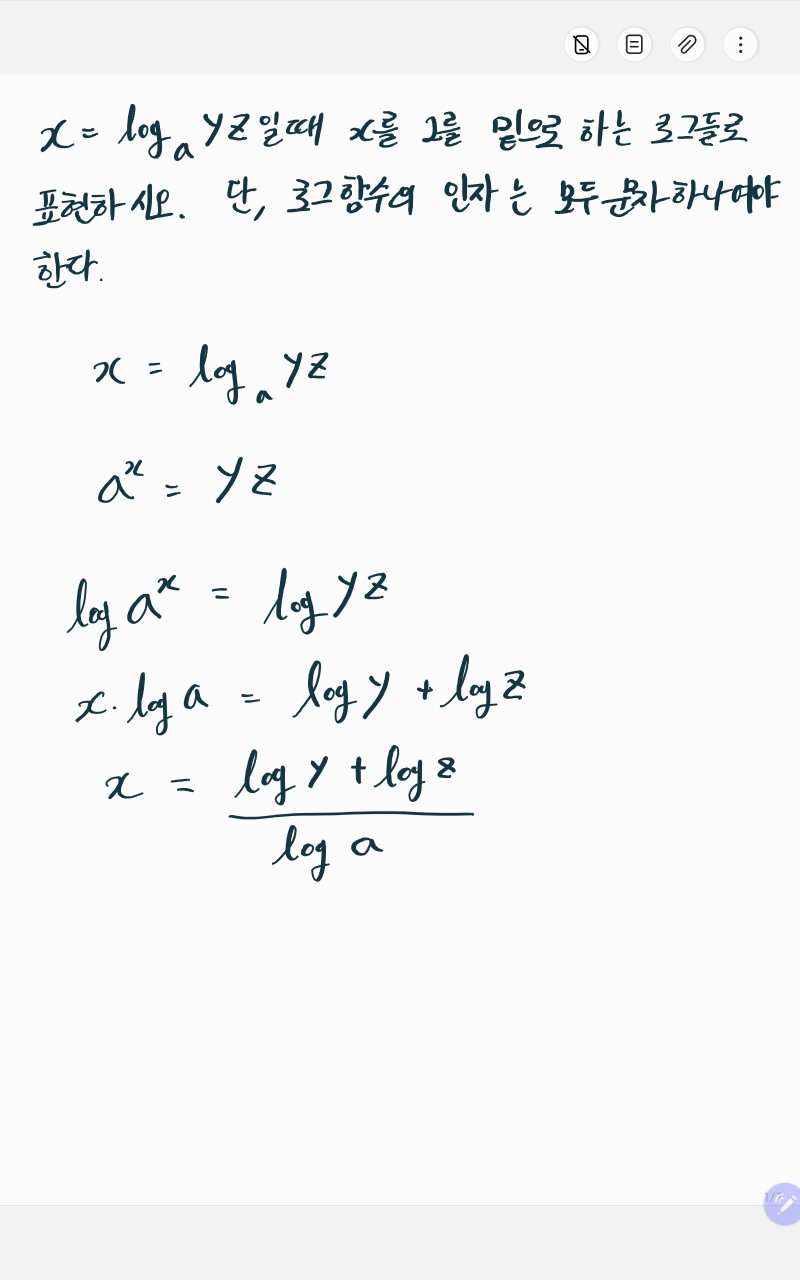 x = log_a yz일때 x를 2를 밑으로 하는 로그들로
표현하시오. 단, 로그함수의 인자는 모두 문자하나여야
한다.
x = log_a yz
a^x = yz
log a^x = log yz
x · log a = log y + log z
x = (log y + log z) / (log a)